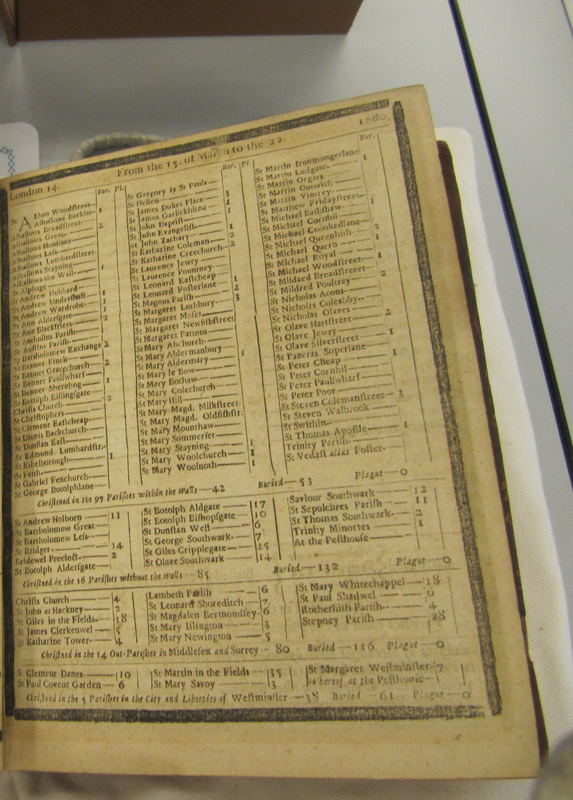 London 14. From the 15. of March to the 22. 1680.
Bur. Pl.
St A Dan Woodstreet
Alhallows Barkin 1
Alhallows Breadstreet 2
Alhallows Great
Alhallows Honilane
Alhallows Less
Alhallows Lumbardstreet
Alhallows Stayning 1
Alhallows the Wall
St Alphage
St Andrew Hubbard
St Andrew Undershaft 1
St Andrew Wardrobe 1
St Ann Aldersgate
St Ann Blackfriers
St Antholins Parish
St Austins Parish
St Bartholomew Exchange 2
St Bennet Finck
St Bennet Gracechurch
St Bennet Paulswharf
St Bennet Sherehog 1
St Botolph Billingsgate
Christs Church 2
St Christophers
St Clement Eastcheap
St Dionis Backchurch
St Dunstan East
St Edmund Lumbardstr.
St Ethelborough 1
St Faith
St Gabriel Fenchurch
St George Botolphlane
Bur. Pl.
St Gregory by St Pauls
St Hellen 3
St James Dukes Place
St James Garlickhithe
St John Baptist
St John Evangelist
St John Zachary
St Katharine Coleman 2
St Katharine Creechurch
St Laurence Jewry
St Laurence Pountney
St Leonard Eastcheap 1
St Leonard Fosterlane 2
St Magnus Parish
St Margaret Lothbury 3
St Margaret Moses
St Margaret Newfishstreet
St Margaret Pattons
St Mary Abchurch
St Mary Aldermanbury 1
St Mary Aldermary
St Mary le Bow
St Mary Bothaw
St Mary Colechurch
St Mary Hill
St Mary Magd. Milkstreet
St Mary Magd. Oldfishstr.
St Mary Mounthaw
St Mary Sommerset
St Mary Stayning 1
St Mary Woolchurch 1
St Mary Woolnoth 1
Bur.
St Martin Ironmongerlane
St Martin Ludgate 1
St Martin Orgars
St Martin Outwich
St Martin Vintrey
St Matthew Fridaystreet
St Michael Bassishaw
St Michael Cornhil
St Michael Crookedlane
St Michael Queenhith 2
St Michael Quern
St Michael Royal
St Michael Woodstreet
St Mildred Breadstreet
St Mildred Poultrey 2
St Nicholas Acons
St Nicholas Coleabby
St Nicholas Olaves
St Olave Hartstreet 2
St Olave Jewry
St Olave Silverstreet 1
St Pancras Soperlane
St Peter Cheap 1
St Peter Cornhil
St Peter Paulswharf
St Peter Poor
St Steven Colemanstreet 3
St Steven Walbrook
St Swithin
St Thomas Apostle 1
Trinity Parish
St Vedast alias Foster
Christned in the 97 Parishes within the Walls 42 Buried 53 Plague 0
St Andrew Holborn 11
St Bartholomew Great
St Bartholomew Less
St Bridget 14
Bridewel Precinct 2
St Botolph Aldersgate
St Botolph Aldgate 17
St Botolph Bishopsgate 10
St Dunstan West 6
St George Southwark 7
St Giles Cripplegate 25
St Olave Southwark 14
Saviour Southwark 12
St Sepulchres Parish 11
St Thomas Southwark 2
Trinity Minories 1
At the Pesthouse
Christned in the 16 Parishes without the Walls 85 Buried 132 Plague 0
Christs Church 4
St John at Hackney 2
St Giles in the Fields 18
St James Clerkenwel 5
St Katharine Tower 4
Lambeth Parish 6
St Leonard Shoreditch
St Magdalen Bermondsey 6
St Mary Islington 3
St Mary Newington 5
St Mary Whitechappel 18
St Paul Shadwel 6
Rotherhith Parish 4
Stepney Parish 28
Christned in the 14 Out-Parishes in Middlesex and Surrey 80 Buried 116 Plague 0
S Clement Danes 10
St Paul Covent Garden 6
St Martin in the Fields 35
St Mary Savoy 3
St Margaret Westminster 7
hereof at the Pesthouse
Christned in the 5 Parishes in the City and Liberties of Westminster 38 Buried 61 Plague 0